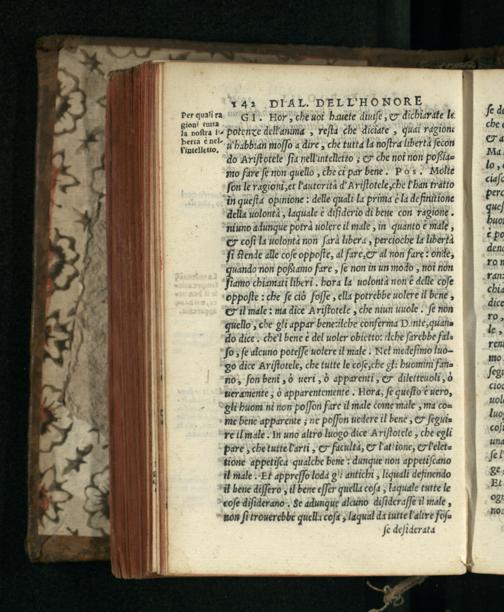 142 DIAL. DELL'HONORE
Per quali ra
gioni tutta
la nostra li-
bertà è nel-
l'intelletto.
GI. Hor, che uoi hauete diuise, & dichiarate le
potenze dell'anima, resta che diciate, quai ragioni
u'habbian mosso a dire, che tutta la nostra libertà secon
do Aristotele sia nell'intelletto; & che noi non possia-
mo fare se non quello, che ci par bene. POS. Molte
son le ragioni, et l'autorità d'Aristotele, che l'han tratto
in questa opinione: delle quali la prima è la definitione
della uolontà, laquale è disiderio di bene con ragione.
niuno adunque potrà uolere il male, in quanto è male,
& così la uolontà non sarà libera, percioche la libertà
si stende alle cose opposte, al fare, & al non fare: onde,
quando non possiamo fare, se non in un modo, noi non
siamo chiamati liberi. hora la uolontà non è delle cose
opposte: che se ciò fosse, ella potrebbe uolere il bene,
& il male: ma dice Aristotele, che niun uuole. se non
quello, che gli appar bene: ilche conferma Dante, quan-
do dice. che'l bene è del uoler obietto: ilche sarebbe fal-
so, se alcuno potesse uolere il male. Nel medesimo luo-
go dice Aristotele, che tutte le cose, che gli huomini fan-
no, son beni, ò ueri, ò apparenti, & diletteuoli, ò
ueramente, ò apparentemente. Hora, se questo è uero,
gli huomini non posson fare il male come male, ma co-
me bene apparente; ne posson uedere il bene, & segui-
re il male. In uno altro luogo dice Aristotele, che egli
pare, che tutte l'arti, & facultà, & l'attione, & l'elet-
tione appetisca qualche bene: dunque non appetiscano
il male. Et appresso loda gli antichi, liquali definendo
il bene dissero, il bene esser quella cosa, laquale tutte le
cose disiderano. Se adunque alcuno disiderasse il male,
non si trouerebbe quella cosa, laqual da tutte l'altre fos-
se desiderata